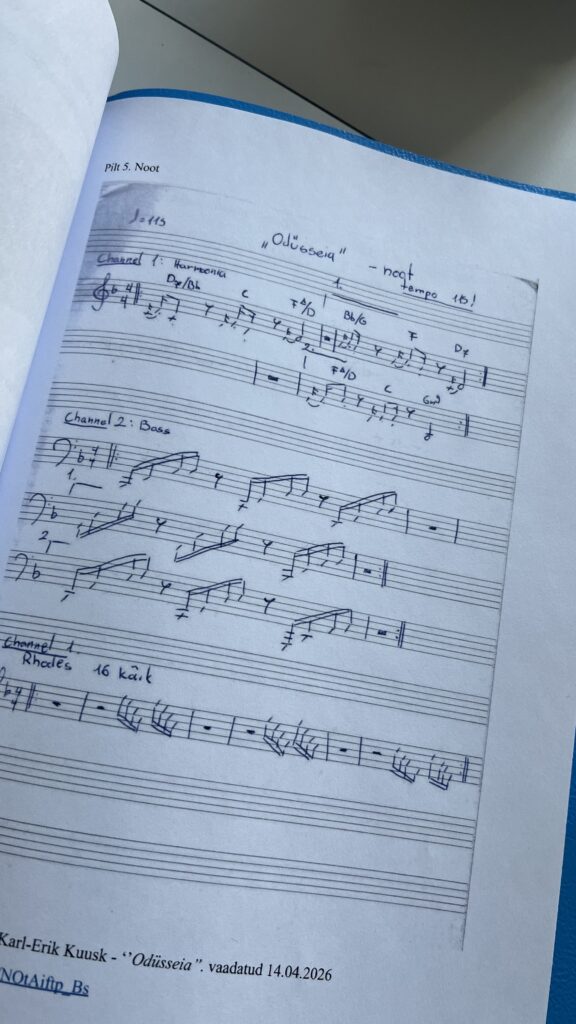 Pilt 5. Noot
♩=115
„Odüsseia” - noot
tempo 115!
Channel 1: Harmonia
1.
D7/Bb C F△/D Bb/G F D7
2.
F△/D C Gm9
Channel 2: Bass
1.
2.
Channel 1
Rhodes 16 käik
Karl-Erik Kuusk - ‘’Odüsseia”. vaadatud 14.04.2026
NOtAiftp_Bs